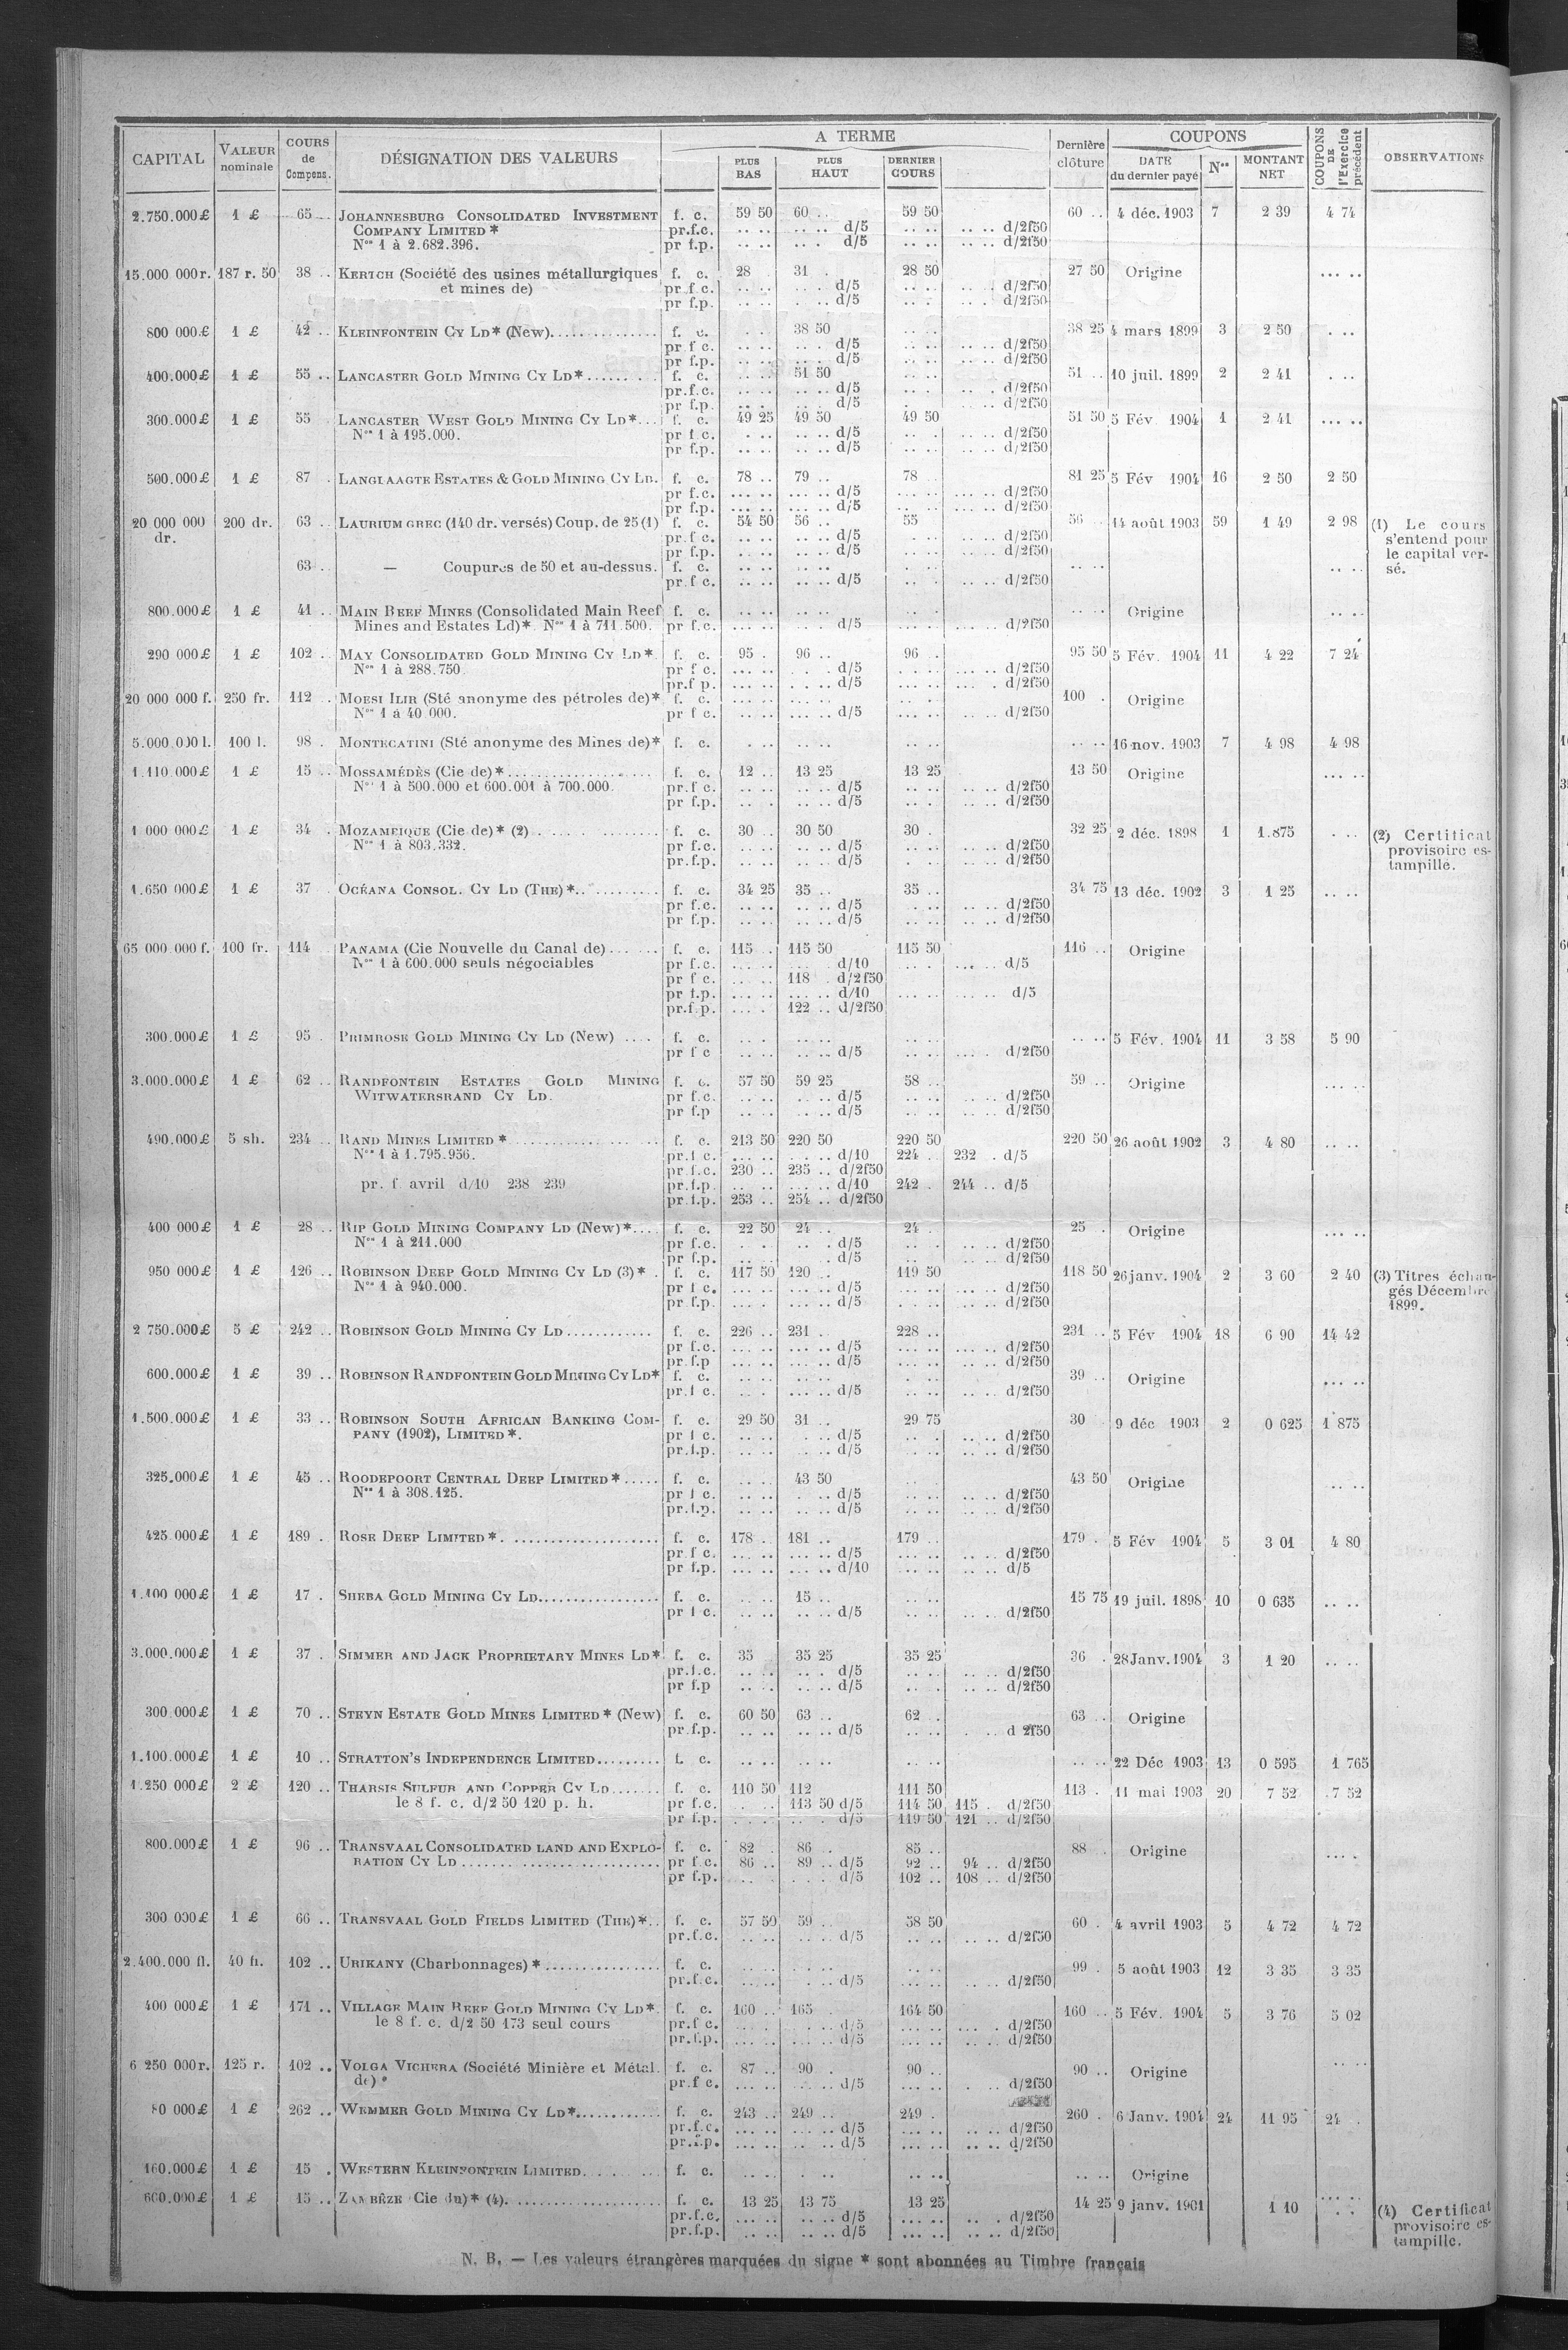 CAPITAL VALEUR nominale COURS de Compens. DÉSIGNATION DES VALEURS A TERME PLUS BAS PLUS HAUT DERNIER COURS Dernière clôture COUPONS DATE du dernier payé Nos MONTANT NET COUPONS DE l'Exercice précédent OBSERVATIONS
2.750.000£ 1 £ 65 .. JOHANNESBURG CONSOLIDATED INVESTMENT f. c. 59 50 60 .. 59 50 60 .. 4 déc. 1903 7 2 39 4 74
COMPANY LIMITED * pr.f.c. .. .. .. .. d/5 .. .. .. .. d/2f50
Nos 1 à 2.682.396. pr f.p. .. .. .. . d/5 .. .. .. .. d/2f50
15.000 000r. 187 r. 50 38 .. KERTCH (Société des usines métallurgiques f. c. 28 31 . 28 50 27 50 Origine ... ..
et mines de) pr f c. .. .. d/5 .. .. d/2f50
pr f.p. .. .. d/5 .. .. d/2f50
800 000£ 1 £ 42 .. KLEINFONTEIN CY LD* (New)............... f. c. 38 50 38 25 4 mars 1899 3 2 50 . ..
pr f c. .. .. d/5 .. .. d/2f50
pr f.p. .. .. d/5 .. .. d/2f50
400.000£ 1 £ 55 .. LANCASTER GOLD MINING CY LD*........ f. c. 51 50 51 .. 10 juil. 1899 2 2 41 . ..
pr.f.c. .. .. d/5 .. .. d/2f50
pr f.p. .. .. d/5 .. .. d/2f50
300.000£ 1 £ 55 LANCASTER WEST GOLD MINING CY LD*... f. c. 49 25 49 50 49 50 51 50 5 Fév 1904 1 2 41 ... ..
Nos 1 à 195.000. pr f c. .. .. d/5 .. .. d/2f50
pr f.p. .. .. d/5 .. .. d/2f50
500.000£ 1 £ 87 . LANGLAAGTE ESTATES & GOLD MINING CY LD. f. c. 78 .. 79 .. 78 81 25 5 Fév 1904 16 2 50 2 50
pr f.c. ... .. d/5 ... .. d/2f50
pr f.p. ... .. d/5 ... .. d/2f50
20 000 000 200 dr. 63 .. LAURIUM GREC (140 dr. versés) Coup. de 25 (1) f. c. 54 50 56 .. 55 56 .. 14 août 1903 59 1 49 2 98 (1) Le cours
dr. pr.f c. .. .. d/5 .. .. d/2f50 s'entend pour
pr f.p. .. .. d/5 .. .. d/2f50 le capital ver-
63 .. — Coupures de 50 et au-dessus. f. c. .. .. .. .. .. .. sé.
pr.f c. .. .. d/5 .. .. d/2f50
800.000£ 1 £ 41 .. MAIN REEF MINES (Consolidated Main Reef f. c. .. .. .. .. .. .. Origine .. ..
Mines and Estates Ld)*. Nos 1 à 711.500. pr f.c. ... .. d/5 ... .. d/2f50
290 000£ 1 £ 102 .. MAY CONSOLIDATED GOLD MINING CY LD*. f. c. 95 . 96 .. 96 .. 95 50 5 Fév. 1904 11 4 22 7 24
Nos 1 à 288.750. pr f c. ... .. d/5 ... .. d/2f50
pr.f p. ... .. d/5 ... .. d/2f50
20 000 000 f. 250 fr. 112 .. MOESI ILIR (Sté anonyme des pétroles de)* f. c. ... .. ... .. ... .. 100 . Origine
Nos 1 à 40 000. pr f c. .. .. d/5 ... .. d/2f50
5.000.000 l. 100 l. 98 . MONTECATINI (Sté anonyme des Mines de)* f. c. . .. .. .. .. .. .. .. 16 nov. 1903 7 4 98 4 98
1.110.000£ 1 £ 15 .. MOSSAMÉDÈS (Cie de)*.................... f. c. 12 .. 13 25 13 25 13 50 Origine ... ..
Nos 1 à 500.000 et 600.001 à 700.000. pr.f c. .. .. d/5 .. .. d/2f50
pr f.p. .. .. d/5 .. .. d/2f50
1 000 000£ 1 £ 34 . MOZAMBIQUE (Cie de)* (2) ............... f. c. 30 .. 30 50 30 . 32 25 2 déc. 1898 1 1.875 . .. (2) Certificat
Nos 1 à 803.332. pr f.c. .. .. d/5 .. .. d/2f50 provisoire es-
pr.f.p. .. .. d/5 .. .. d/2f50 tampillé.
1.650 000£ 1 £ 37 . OCÉANA CONSOL. CY LD (THE)*............ f. c. 34 25 35 .. 35 .. 34 75 13 déc. 1902 3 1 25 .. ..
pr f.c. .. .. d/5 .. .. d/2f50
pr f.p. .. .. d/5 .. .. d/2f50
65 000 000 f. 100 fr. 114 PANAMA (Cie Nouvelle du Canal de)....... f. c. 115 .. 115 50 115 50 116 .. Origine
Nos 1 à 600.000 seuls négociables pr f.c. ... .. d/10 ... .. d/5
pr f c. .. .. 118 . d/2f50
pr f.p. ... .. d/10 ... .. d/5
pr.f.p. ... . 122 .. d/2f50
300.000£ 1 £ 95 . PRIMROSE GOLD MINING CY LD (New) .... f. c. .. . .. .. .. .. .. .. 5 Fév. 1904 11 3 58 5 90
pr f c .. .. d/5 .. .. d/2f50
3.000.000£ 1 £ 62 .. RANDFONTEIN ESTATES GOLD MINING f. c. 57 50 59 25 58 .. 59 .. Origine ... ..
WITWATERSRAND CY LD. pr f.c. .. .. d/5 .. .. d/2f50
pr f.p .. .. d/5 .. .. d/2f50
490.000£ 5 sh. 234 .. RAND MINES LIMITED *................... f. c. 213 50 220 50 220 50 220 50 26 août 1902 3 4 80 .. ..
Nos 1 à 1.795.956. pr.f c. ... .. d/10 224 . 232 . d/5
pr.f.c. 230 .. 235 .. d/2f50
pr. f. avril d/10 238 239 pr.f.p. .. .. d/10 242 . 244 .. d/5
pr.f.p. 253 .. 254 .. d/2f50
400 000£ 1 £ 28 .. RIP GOLD MINING COMPANY LD (New)*.... f. c. 22 50 24 .. 24 . 25 . Origine ... ..
Nos 1 à 211.000 pr f.c. . . .. . d/5 .. . .. .. d/2f50
pr f.p. .. . d/5 .. .. d/2f50
950 000£ 1 £ 126 .. ROBINSON DEEP GOLD MINING CY LD (3)* . f. c. 117 50 120 .. 119 50 118 50 26 janv. 1904 2 3 60 2 40 (3) Titres échan-
Nos 1 à 940.000. pr f c. ... .. d/5 ... .. d/2f50 gés Décembre
pr.f.p. ... .. d/5 ... .. d/2f50 1899.
2 750.000£ 5 £ 242 .. ROBINSON GOLD MINING CY LD............ f. c. 226 .. 231 . 228 .. 231 .. 5 Fév 1904 18 6 90 14 42
pr f.c. ... .. d/5 ... .. d/2f50
pr.f.p ... .. d/5 ... .. d/2f50
600.000£ 1 £ 39 .. ROBINSON RANDFONTEIN GOLD MINING CY LD* f. c. .. .. .. .. . .. 39 .. Origine ... ..
pr.f c. .. . ... .. d/5 .. .. d/2f50
1.500.000£ 1 £ 33 .. ROBINSON SOUTH AFRICAN BANKING COM- f. c. 29 50 31 .. 29 75 30 9 déc 1903 2 0 625 1 875
PANY (1902), LIMITED*. pr f c. .. .. d/5 .. .. d/2f50
pr.f.p. .. .. d/5 .. .. d/2f50
325.000£ 1 £ 45 .. ROODEPOORT CENTRAL DEEP LIMITED*..... f. c. .. .. 43 50 .. .. 43 50 Origine .. ..
Nos 1 à 308.125. pr f c. .. .. d/5 .. .. d/2f50
pr.f.p. .. .. d/5 .. .. d/2f50
425 000£ 1 £ 189 . ROSE DEEP LIMITED*. ................... f. c. 178 .. 181 .. 179 .. 179 . 5 Fév 1904 5 3 01 4 80
pr f c. ... .. d/5 ... .. d/2f50
pr f.p. ... .. d/10 ... .. d/5
1.100 000£ 1 £ 17 . SHEBA GOLD MINING CY LD................. f. c. .. .. 15 .. .. .. 15 75 19 juil. 1898 10 0 635 .. ..
pr f c. .. .. d/5 .. .. d/2f50
3.000.000£ 1 £ 37 . SIMMER AND JACK PROPRIETARY MINES LD* f. c. 35 35 25 35 25 36 . 28 Janv. 1904 3 1 20 .. ..
pr.f.c. .. .. d/5 .. .. d/2f50
pr f.p .. .. d/5 .. .. d/2f50
300.000£ 1 £ 70 .. STEYN ESTATE GOLD MINES LIMITED* (New) f. c. 60 50 63 .. 62 .. 63 .. Origine
pr.f.p. .. .. d/5 .. .. d 2f50
1.100.000£ 1 £ 10 .. STRATTON'S INDEPENDENCE LIMITED......... f. c. .. .. .. .. .. .. .. .. 22 Déc 1903 13 0 595 1 765
1.250 000£ 2 £ 120 .. THARSIS SULFUR AND COPPER CY LD....... f. c. 110 50 112 111 50 113 . 11 mai 1903 20 7 52 7 52
le 8 f. c. d/2 50 120 p. h. pr f.c. .. .. 113 50 d/5 114 50 115 . d/2f50
pr f.p. .. .. d/5 119 50 121 .. d/2f50
800.000£ 1 £ 96 .. TRANSVAAL CONSOLIDATED LAND AND EXPLO- f. c. 82 . 86 .. 85 .. 88 . Origine ... .
RATION CY LD........................... pr f.c. 86 .. 89 .. d/5 92 .. 94 .. d/2f50
pr f.p. .. . .. . d/5 102 .. 108 .. d/2f50
300 000£ 1 £ 66 .. TRANSVAAL GOLD FIELDS LIMITED (THE)*.. f. c. 57 50 59 .. 58 50 60 . 4 avril 1903 5 4 72 4 72
pr.f.c. .. .. d/5 .. .. d/2f50
2.400.000 fl. 40 fl. 102 .. URIKANY (Charbonnages)*................ f. c. .. .. .. .. .. .. 99 . 5 août 1903 12 3 35 3 35
pr.f.c. .. .. d/5 ... .. d/2f50
400 000£ 1 £ 171 .. VILLAGE MAIN REEF GOLD MINING CY LD*. f. c. 160 .. 165 . 164 50 160 .. 5 Fév. 1904 5 3 76 5 02
le 8 f. c. d/2 50 173 seul cours pr.f c. ... . d/5 ... .. d/2f50
pr.f.p. ... .. d/5 ... .. d/2f50
6 250 000r. 125 r. 102 .. VOLGA VICHERA (Société Minière et Métal. f. c. 87 .. 90 . 90 .. 90 .. Origine .. ..
de)* pr.f c. ... .. d/5 ... .. d/2f50
80 000£ 1 £ 262 .. WEMMER GOLD MINING CY LD*............ f. c. 243 .. 249 .. 249 . 260 . 6 Janv. 1904 24 11 95 24 .
pr.f.c. ... .. d/5 ... .. d/2f50
pr.f.p. ... .. d/5 ... .. d/2f50
160.000£ 1 £ 15 . WESTERN KLEINFONTEIN LIMITED.......... f. c. .. .. . .. .. .. .. .. Origine
600.000£ 1 £ 15 .. ZAMBÈZE (Cie du)* (4)..................... f. c. 13 25 13 75 13 25 14 25 9 janv. 1901 1 10 . .. (4) Certificat
pr.f.c. ... .. d/5 ... .. d/2f50 provisoire es-
pr.f.p. .. .. d/5 ... .. d/2f50 tampillé.
N. B. — Les valeurs étrangères marquées du signe * sont abonnées au Timbre français